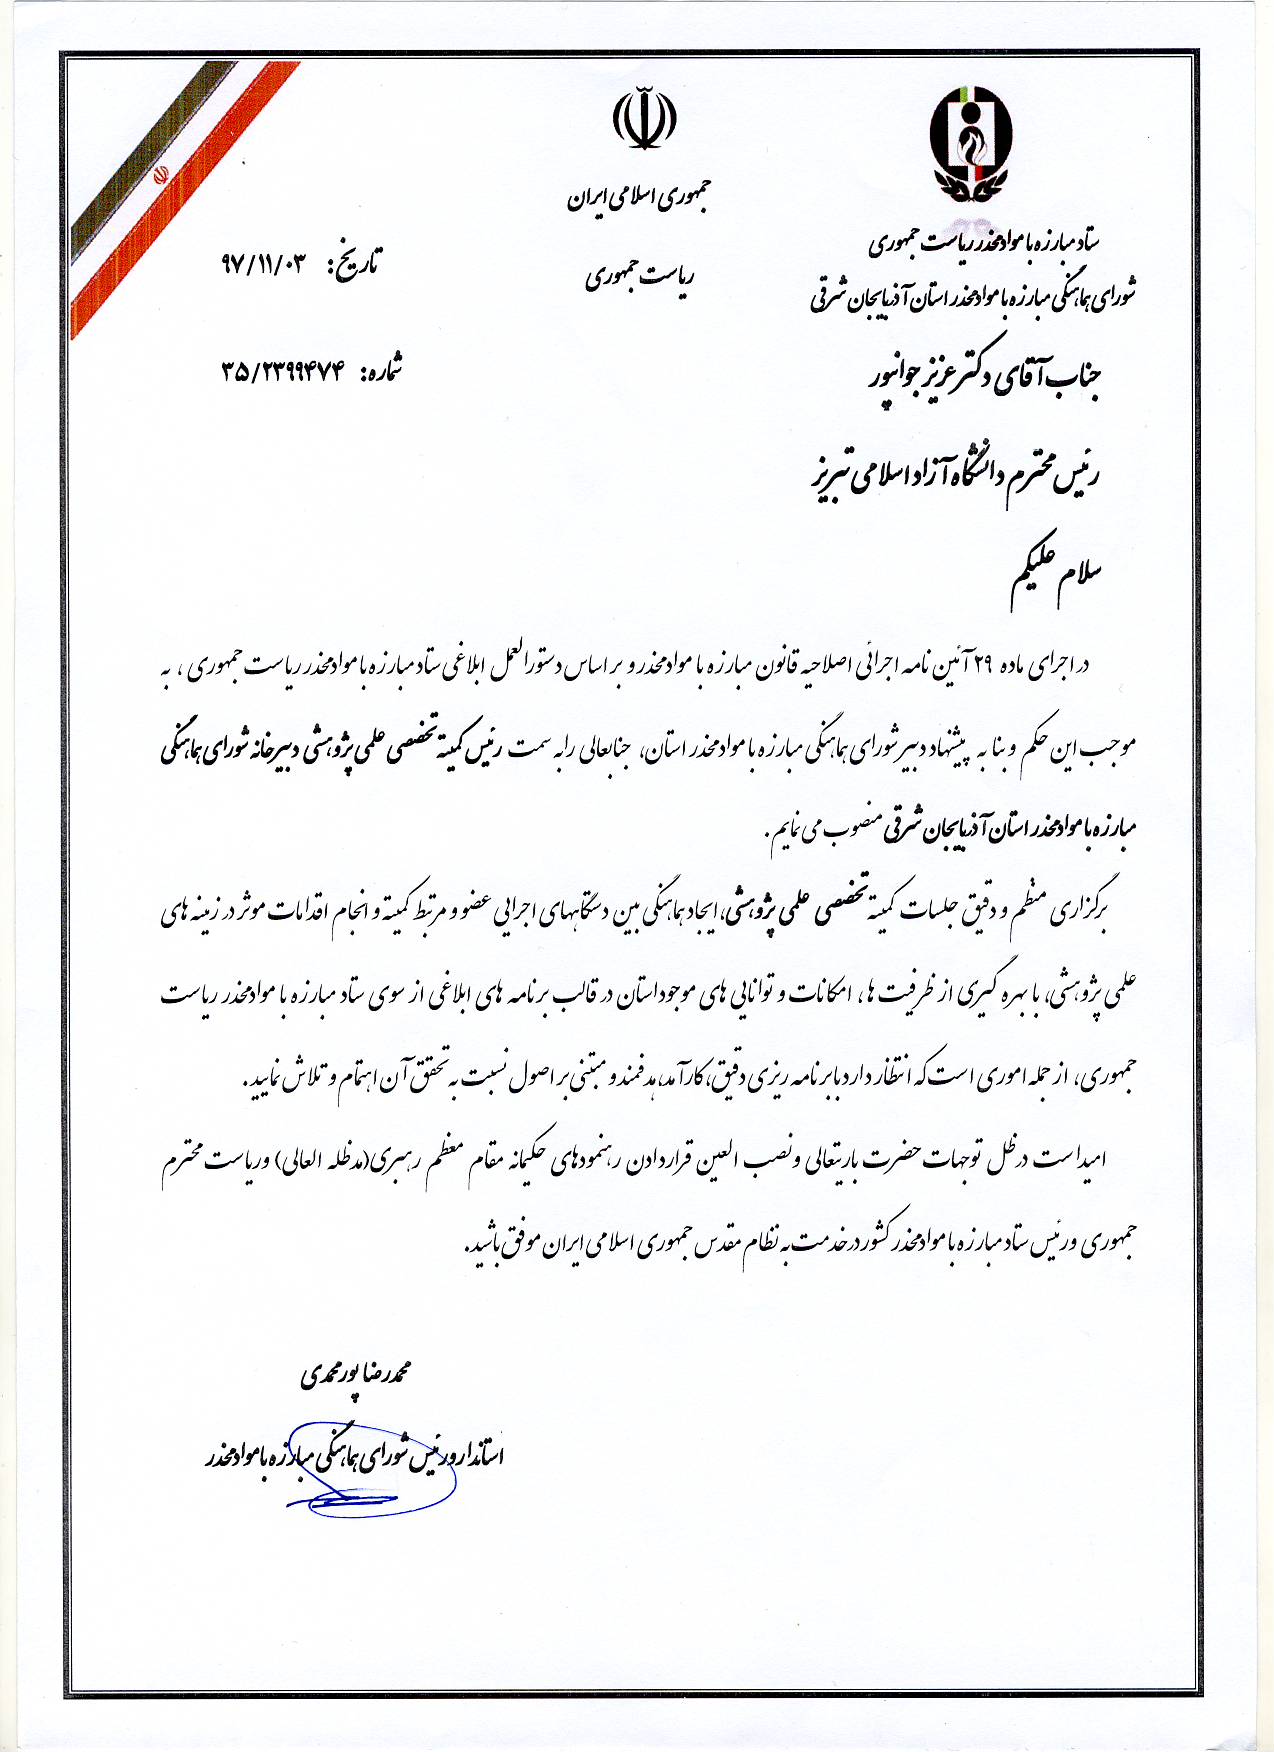 جمهوری اسلامی ایران
ریاست جمهوری
ستاد مبارزه با مواد مخدر ریاست جمهوری
شورای هماهنگی مبارزه با مواد مخدر استان آذربایجان شرقی
تاریخ: ۹۷/۱۱/۰۳
شماره: ۳۵/۲۳۹۹۴۷۴
جناب آقای دکتر عزیز جوانپور
رئیس محترم دانشگاه آزاد اسلامی تبریز
سلام علیکم
در اجرای ماده ۲۹ آئین نامه اجرائی اصلاحیه قانون مبارزه با مواد مخدر و بر اساس دستورالعمل ابلاغی ستاد مبارزه با مواد مخدر ریاست جمهوری ، به
موجب این حکم و بنا به پیشنهاد دبیر شورای هماهنگی مبارزه با مواد مخدر استان، جنابعالی را به سمت رئیس کمیته تخصصی علمی پژوهشی دبیرخانه شورای هماهنگی
مبارزه با مواد مخدر استان آذربایجان شرقی منصوب می نمایم .
برگزاری منظم و دقیق جلسات کمیته تخصصی علمی پژوهشی، ایجاد هماهنگی بین دستگاههای اجرایی عضو و مرتبط کمیته و انجام اقدامات موثر در زمینه های
علمی پژوهشی، با بهره گیری از ظرفیت ها، امکانات و توانایی های موجود استان در قالب برنامه های ابلاغی از سوی ستاد مبارزه با مواد مخدر ریاست
جمهوری، از جمله اموری است که انتظار دارد با برنامه ریزی دقیق، کارآمد، هدفمند و مبتنی بر اصول نسبت به تحقق آن اهتمام و تلاش نمایید .
امید است در ظل توجهات حضرت باریتعالی و نصب العین قرار دادن رهنمودهای حکیمانه مقام معظم رهبری(مد ظله العالی) و ریاست محترم
جمهوری و رئیس ستاد مبارزه با مواد مخدر کشور در خدمت به نظام مقدس جمهوری اسلامی ایران موفق باشید.
محمدرضا پورمحمدی
استاندار و رئیس شورای هماهنگی مبارزه با مواد مخدر